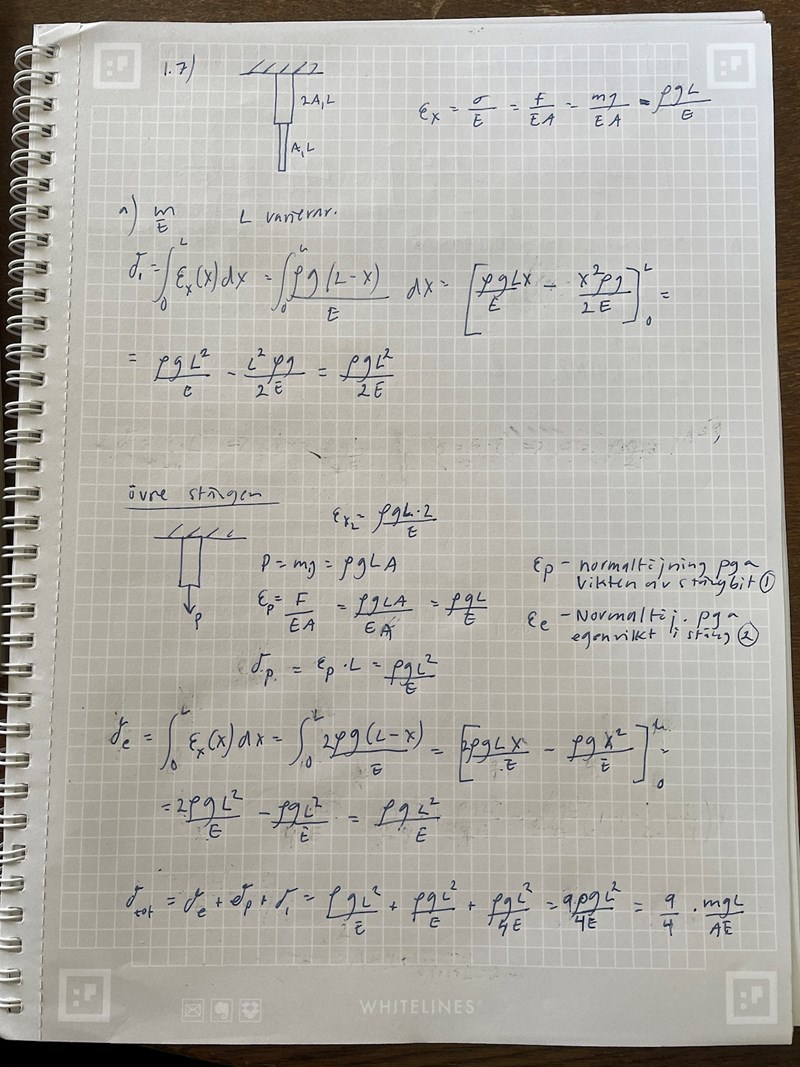 1.7)
2A,L
A,L
εx = σ/E = F/EA = mg/EA = ρgL/E
a) m/E L varierar.
δ₁ = ∫₀ᴸ εx(x)dx = ∫₀ᴸ ρg(L-x)/E dx = [ρgLx/E - x²ρg/2E]₀ᴸ =
= ρgL²/E - L²ρg/2E = ρgL²/2E
övre stången
εx₂ = ρgL·2/E
P
P = mg = ρgLA
εp = F/EA = ρgLA/EA = ρgL/E
δp = εp · L = ρgL²/E
εp - normaltöjning pga
vikten av stångbit ①
εe - Normaltöj. pga
egenvikt i stång ②
δe = ∫₀ᴸ εx(x)dx = ∫₀ᴸ 2ρg(L-x)/E = [2ρgLx/E - ρgx²/E]₀ᴸ =
= 2ρgL²/E - ρgL²/E = ρgL²/E
δtot = δe + δp + δ₁ = ρgL²/E + ρgL²/E + ρgL²/4E = 9ρgL²/4E = 9/4 · mgL/AE
WHITELINES®